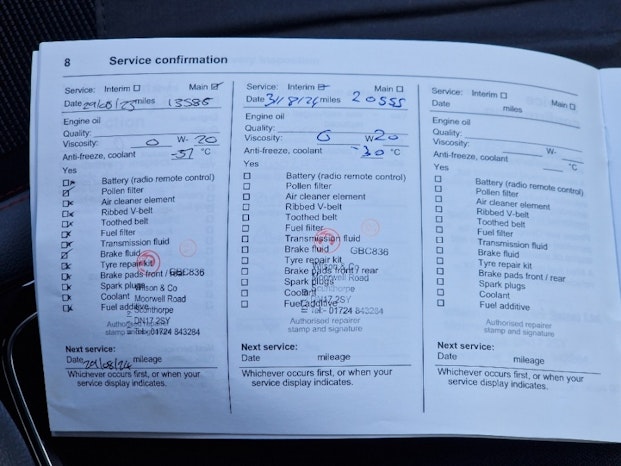 8 Service confirmation
Service: Interim Main
Date 29/08/23 miles 13585
Engine oil
Quality:
Viscosity: 0 W- 20
Anti-freeze, coolant -37 °C
Yes
Battery (radio remote control)
Pollen filter
Air cleaner element
Ribbed V-belt
Toothed belt
Fuel filter
Transmission fluid
Brake fluid
Tyre repair kit
Brake pads front / rear
GBC836
Spark plugs
Wilson & Co
Coolant
Moorwell Road
Fuel additive
Scunthorpe
Authorised repairer
DN17 2SY
stamp and signature
Tel:- 01724 843284
Next service:
Date 29/08/24 mileage
Whichever occurs first, or when your
service display indicates.
Service: Interim Main
Date 31/8/24 miles 20555
Engine oil
Quality:
Viscosity: 0 W- 20
Anti-freeze, coolant -30 °C
Yes
Battery (radio remote control)
Pollen filter
Air cleaner element
Ribbed V-belt
Toothed belt
Fuel filter
Transmission fluid
Brake fluid
GBC836
Tyre repair kit
Wilson & Co
Brake pads front / rear
Moorwell Road
Spark plugs
Scunthorpe
Coolant
DN17 2SY
Fuel additive
Tel:- 01724 843284
Authorised repairer
stamp and signature
Next service:
Date mileage
Whichever occurs first, or when your
service display indicates.
Service: Interim Main
Date miles
Engine oil
Quality:
Viscosity: W-
Anti-freeze, coolant °C
Yes
Battery (radio remote control)
Pollen filter
Air cleaner element
Ribbed V-belt
Toothed belt
Fuel filter
Transmission fluid
Brake fluid
Tyre repair kit
Brake pads front / rear
Spark plugs
Coolant
Fuel additive
Authorised repairer
stamp and signature
Next service:
Date mileage
Whichever occurs first, or when your
service display indicates.